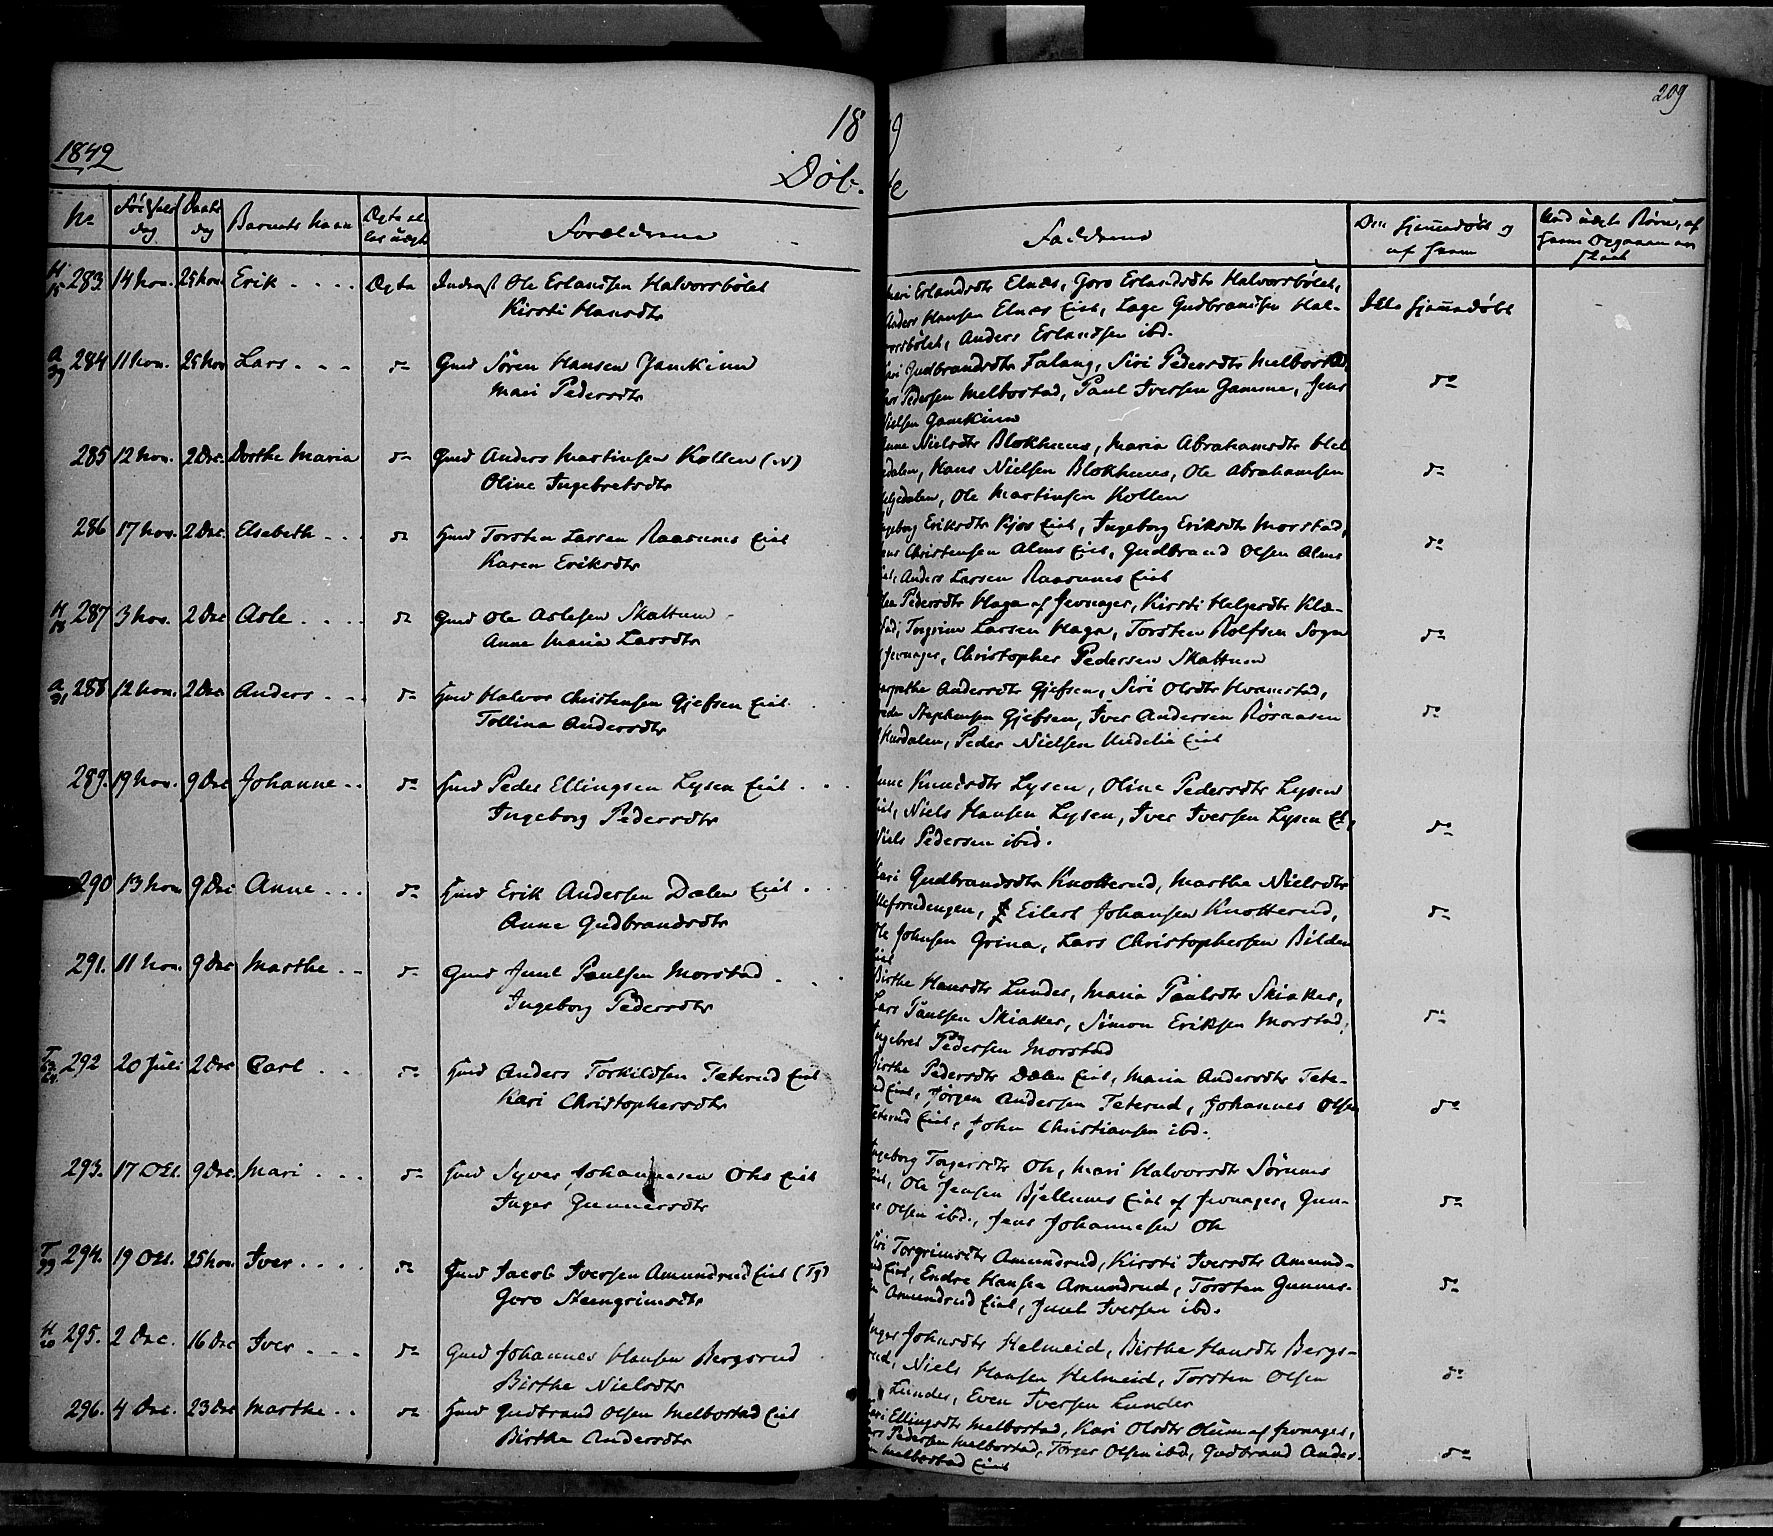 209
18
1849
Døb.
No Fødsels dag Daabs dag Barnets Navn Ægte el. Forældrene
Fadderne Om hjemmedøbt og af hvem
283 14 Nov. 25 Nov. Erik Ægte Ole Erlandsen Halvorsbølet
Kirsti Hansdtr
Erlandsdtr Elnæs, Goro Erlandsdtr Halvorsbølet,
Anders Hansen Elnæs Eiet, Lage Gudbrandsen Hal-
vorsbølet, Anders Erlandsen ibd.
Ikke hjemmedøbt
284 11 Nov. 25 Nov Lars do Gmd Søren Hansen Gamkinn
Mari Pedersdtr
Gudbrandsdtr Falang, Siri Pedersdtr Melbostad,
Pedersen Melbostad, Paul Iversen Gamme, Jens
Nielsen Gamkinn
do
285 12 Nov. 2 Dec. Dorthe Maria do Gmd Anders Martinsen Kollen (N)
Oline Ingebretsdtr
Anne Nielsdtr Blokhuus, Maria Abrahamsdtr
Hans Nielsen Blokhuus, Ole Abrahamsen
Ole Martinsen Kollen
do
286 17 Nov. 2 Dec. Elsebeth do Hmd Torsten Larsen Raasnæs Eiet
Karen Eriksdtr
Ingeborg Eriksdtr Kjos Eiet, Ingeborg Eriksdtr Morstad,
Christensen Alms Eiet, Gudbrand Olsen Alms
Eiet, Anders Larsen Raasnæs Eiet
do
H 18 287 3 Nov. 2 Dec Asle do Gmd Ole Aslesen Skattum
Anne Maria Larsdtr
Pedersdtr Haga af Jevnager, Kirsti Helgesdtr Klæ-
stad, Torgrim Larsen Haga, Torsten Rolfsen Sogn
Jevnager, Christopher Pedersen Skattum
do
288 12 Nov. 2 Dec Anders do Hmd Halvor Christensen Gjefsen Eiet
Tolline Andersdtr
Andersdtr Gjefsen, Siri Olsdtr Hvamstad,
Stephensen Gjefsen, Iver Andersen Røsaasen
Hurdalen, Peder Nielsen Eiet
do
289. 19 Nov. 9 Dec Johanne do Hmd Peder Ellingsen Lysen Eiet
Ingeborg Pedersdtr
Anne Knudsdtr Lysen, Oline Pedersdtr Lysen
Eiet, Niels Hansen Lysen, Iver Iversen Lysen Et,
Niels Pedersen ibid.
do
290 13 Nov 9 Dec Anne do Hmd Erik Andersen Dælen Eiet
Anne Gudbrandsdtr
Kari Gudbrandsdtr Knotterud, Marthe Nielsdtr
Eilert Johansen Knotterud,
Ole Johnsen Grina, Lars Christophersen Bilden
Eiet
do
291. 11 Nov. 9 Dec Marthe do Gmd Juul Paulsen Morstad
Ingeborg Pedersdtr
Birthe Hansdtr Lunder, Maria Paulsdtr Skiaker,
Lars Paulsen Skiaker, Simon Eriksen Morstad,
Ingebret Pedersen Morstad
do
292 20 Juli 2 Dec Carl do Hmd Anders Torkildsen Teterud Eiet
Kari Christophersdtr
Birthe Pedersdtr Dælen Eiet, Maria Andersdtr Tete-
rud Eiet, Jørgen Andersen Teterud, Johannes Olsen
Teterud Eiet, John Christiansen ibd.
do
293. 17 Oct. 9 Dec. Mari do Hmd Syver Johannesen Ohs Eiet
Inger Gunnersdtr
Ingeborg Torgersdtr Oh, Mari Halvorsdtr Sørums
Eiet, Ole Jensen Bjellums Eiet af Jevnager, Gun-
Olsen ibd., Jens Johannesen Oh
do
294. 19 Oct. 25 Nov. Iver do Hmd Jacob Iversen Amundrud Eiet (Tj)
Goro Steengrimsdtr
Siri Torgrimsdtr Amundrud, Kirsti Iversdtr Amund-
rud Eiet, Endre Hansen Amundrud, Torsten Gunner-
Amundrud Eiet, Juul Iversen ibd.
do
H 20 295. 2 Dec. 16 Dec Iver do Gmd Johannes Hansen Bergsrud
Birthe Nielsdtr
Inger Johnsdtr Helmeid, Birthe Hansdtr Bergs-
rud, Niels Hansen Helmeid, Torsten Olsen
Lunder, Even Iversen Lunder
do
296. 4 Dec. 23 Dec Marthe do Hmd Gudbrand Olsen Melbostad Eiet
Birthe Andersdtr
Kari Ellingsdtr Melbostad, Kari Olsdtr Olum af Jevnager,
Pedersen Melbostad, Torger Olsen ibd, Gudbrand Ander-
Melbostad Eiet
do